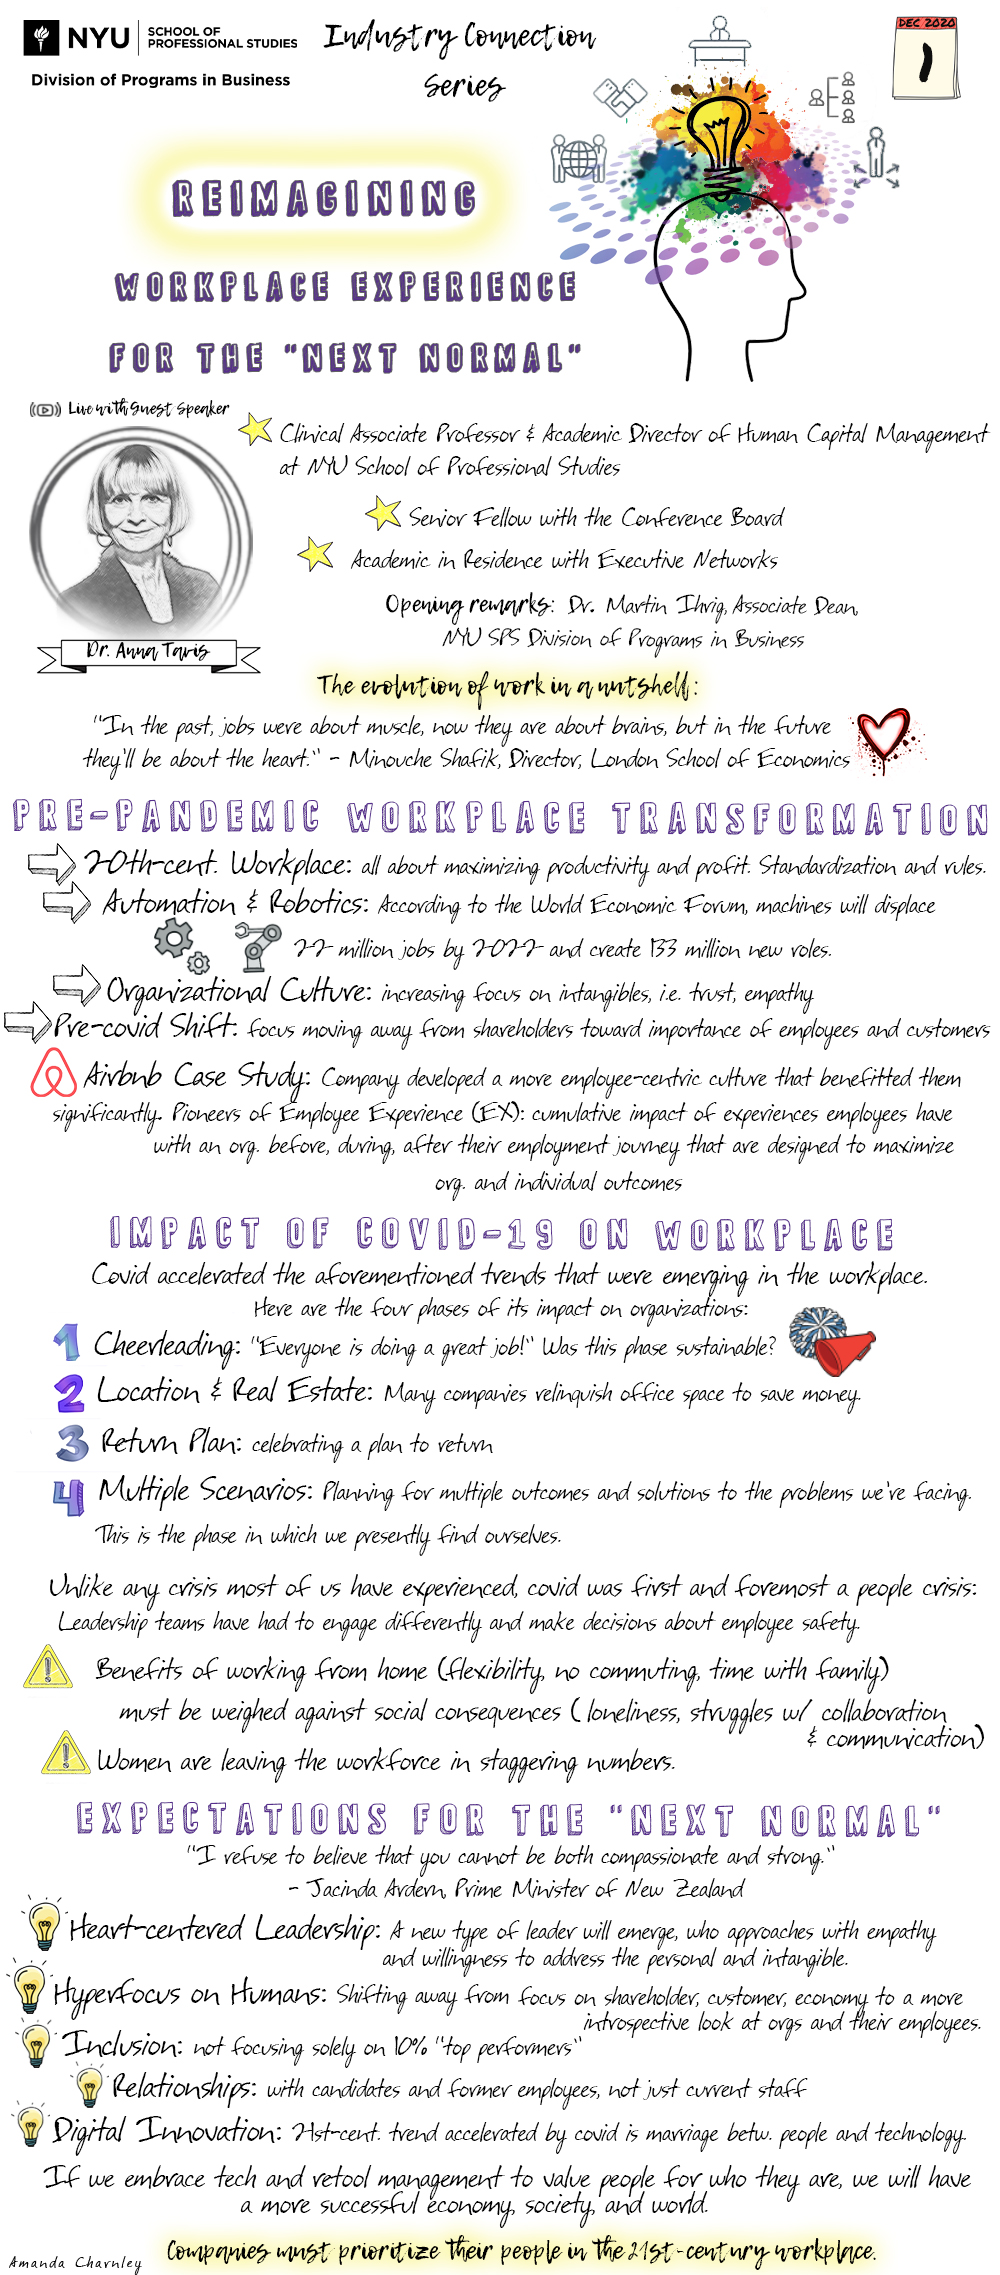 NYU SCHOOL OF
PROFESSIONAL STUDIES
Division of Programs in Business
Industry Connection
Series
DEC 2020
1
REIMAGINING
WORKPLACE EXPERIENCE
FOR THE "NEXT NORMAL"
Live with Guest Speaker
Dr. Anna Tavis
Clinical Associate Professor & Academic Director of Human Capital Management
at NYU School of Professional Studies
Senior Fellow with the Conference Board
Academic in Residence with Executive Networks
Opening remarks: Dr. Martin Ihrig, Associate Dean,
NYU SPS Division of Programs in Business
The evolution of work in a nutshell:
"In the past, jobs were about muscle, now they are about brains, but in the future
they'll be about the heart." - Minouche Shafik, Director, London School of Economics
PRE-PANDEMIC WORKPLACE TRANSFORMATION
20th-cent. Workplace: all about maximizing productivity and profit. Standardization and rules.
Automation & Robotics: According to the World Economic Forum, machines will displace
22 million jobs by 2022 and create 133 million new roles.
Organizational Culture: increasing focus on intangibles, i.e. trust, empathy
Pre-covid Shift: focus moving away from shareholders toward importance of employees and customers
Airbnb Case Study: Company developed a more employee-centric culture that benefitted them
significantly. Pioneers of Employee Experience (EX): cumulative impact of experiences employees have
with an org. before, during, after their employment journey that are designed to maximize
org. and individual outcomes
IMPACT OF COVID-19 ON WORKPLACE
Covid accelerated the aforementioned trends that were emerging in the workplace.
Here are the four phases of its impact on organizations:
1 Cheerleading: "Everyone is doing a great job!" Was this phase sustainable?
2 Location & Real Estate: Many companies relinquish office space to save money.
3 Return Plan: celebrating a plan to return
4 Multiple Scenarios: Planning for multiple outcomes and solutions to the problems we're facing.
This is the phase in which we presently find ourselves.
Unlike any crisis most of us have experienced, covid was first and foremost a people crisis:
Leadership teams have had to engage differently and make decisions about employee safety.
Benefits of working from home (flexibility, no commuting, time with family)
must be weighed against social consequences (loneliness, struggles w/ collaboration
& communication)
Women are leaving the workforce in staggering numbers.
EXPECTATIONS FOR THE "NEXT NORMAL"
"I refuse to believe that you cannot be both compassionate and strong."
- Jacinda Ardern, Prime Minister of New Zealand
Heart-centered Leadership: A new type of leader will emerge, who approaches with empathy
and willingness to address the personal and intangible.
Hyperfocus on Humans: Shifting away from focus on shareholder, customer, economy to a more
introspective look at orgs and their employees.
Inclusion: not focusing solely on 10% "top performers"
Relationships: with candidates and former employees, not just current staff
Digital Innovation: 21st-cent. trend accelerated by covid is marriage betw. people and technology.
If we embrace tech and retool management to value people for who they are, we will have
a more successful economy, society, and world.
Companies must prioritize their people in the 21st-century workplace.
Amanda Charnley